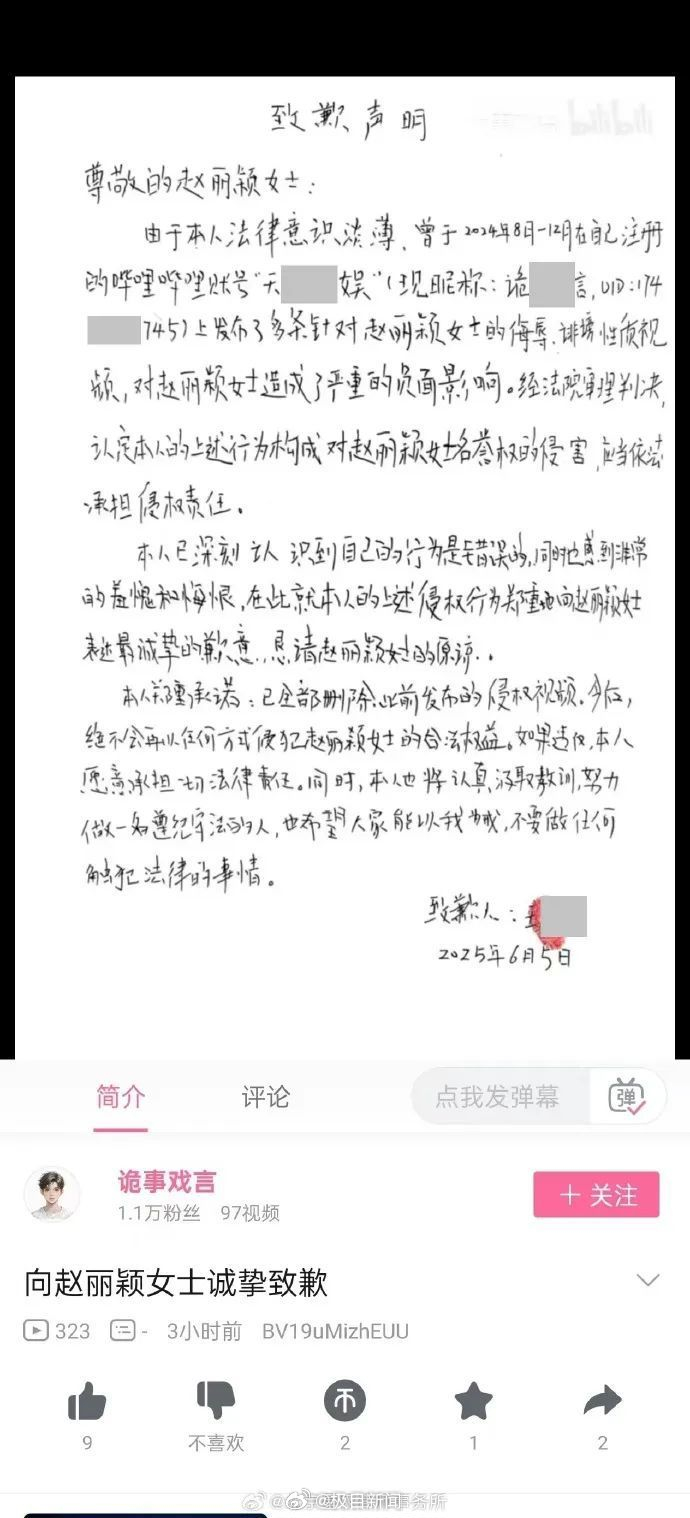 致歉声明
bilibili
尊敬的赵丽颖女士：
由于本人法律意识淡薄，曾于2024年8月-12月在自己注册
的哔哩哔哩账号"天 娱"（现昵称：诡 言，UID：174
745）上发布了多条针对赵丽颖女士的侮辱、诽谤性质视
频，对赵丽颖女士造成了严重的负面影响。经法院审理判决，
认定本人的上述行为构成对赵丽颖女士名誉权的侵害，应当依法
承担侵权责任。
本人已深刻认识到自己的行为是错误的，同时也感到非常
的羞愧和悔恨，在此就本人的上述侵权行为郑重地向赵丽颖女士
表达最诚挚的歉意，恳请赵丽颖女士的原谅。
本人郑重承诺：已全部删除此前发布的侵权视频。今后，
绝不会再以任何方式侵犯赵丽颖女士的合法权益。如果违反，本人
愿意承担一切法律责任。同时，本人也将认真汲取教训，努力
做一名遵纪守法的人，也希望大家能以我为戒，不要做任何
触犯法律的事情。
致歉人：王
2025年6月5日
简介 评论 点我发弹幕 弹
诡事戏言
1.1万粉丝 97视频
＋ 关注
向赵丽颖女士诚挚致歉
323 - 3小时前 BV19uMizhEUU
9 不喜欢 2 1 2
@极目新闻 事务所